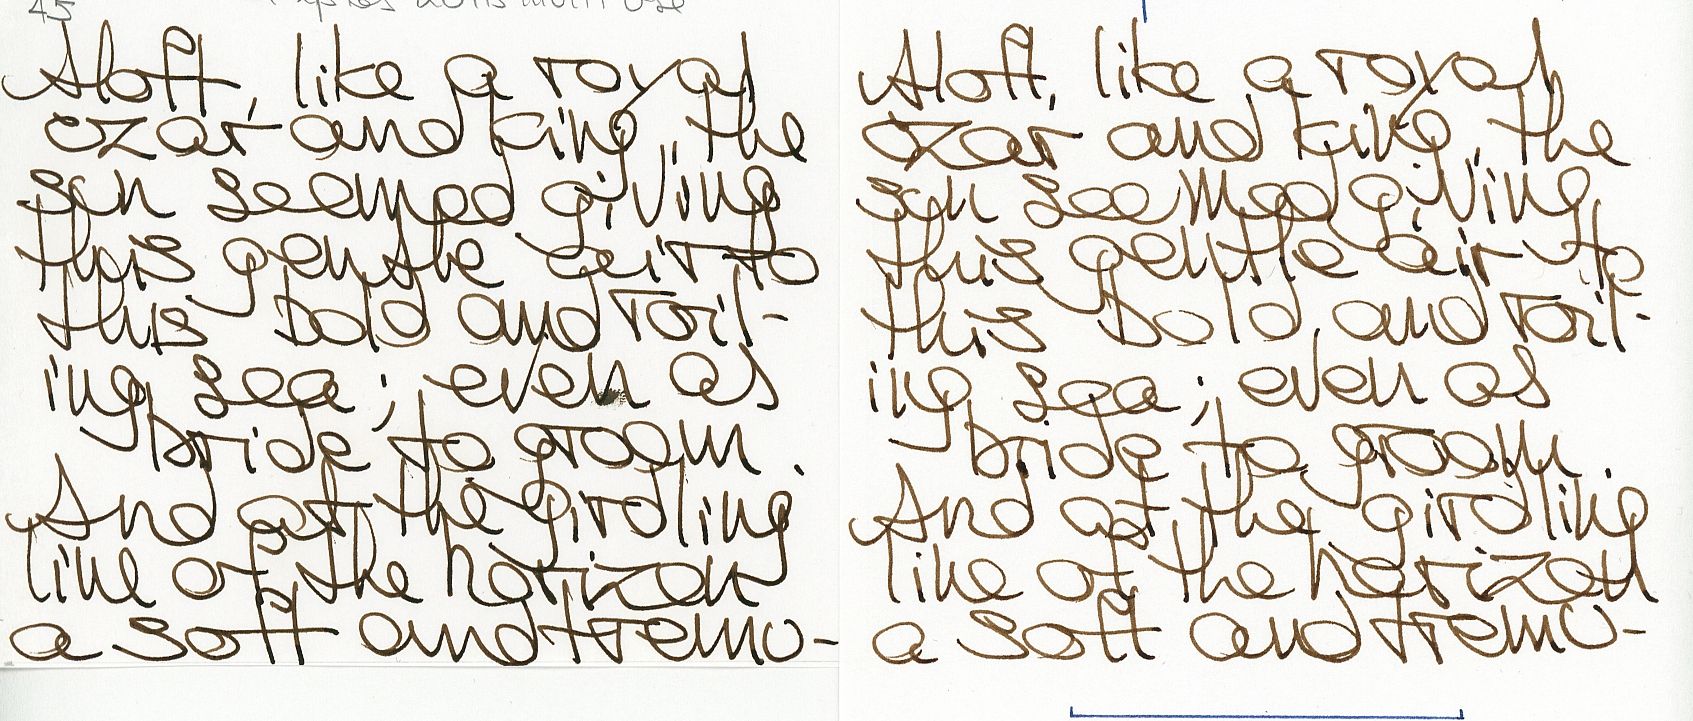 45
Aloft, like a royal
czar and king, the
sun seemed giving
this gentle air to
this bold and roll-
ing sea; even as
bride to groom.
And at the girdling
line of the horizon
a soft and tremu-
Aloft, like a royal
czar and king, the
sun seemed giving
this gentle air to
this bold and roll-
ing sea; even as
bride to groom.
And at the girdling
line of the horizon
a soft and tremu-